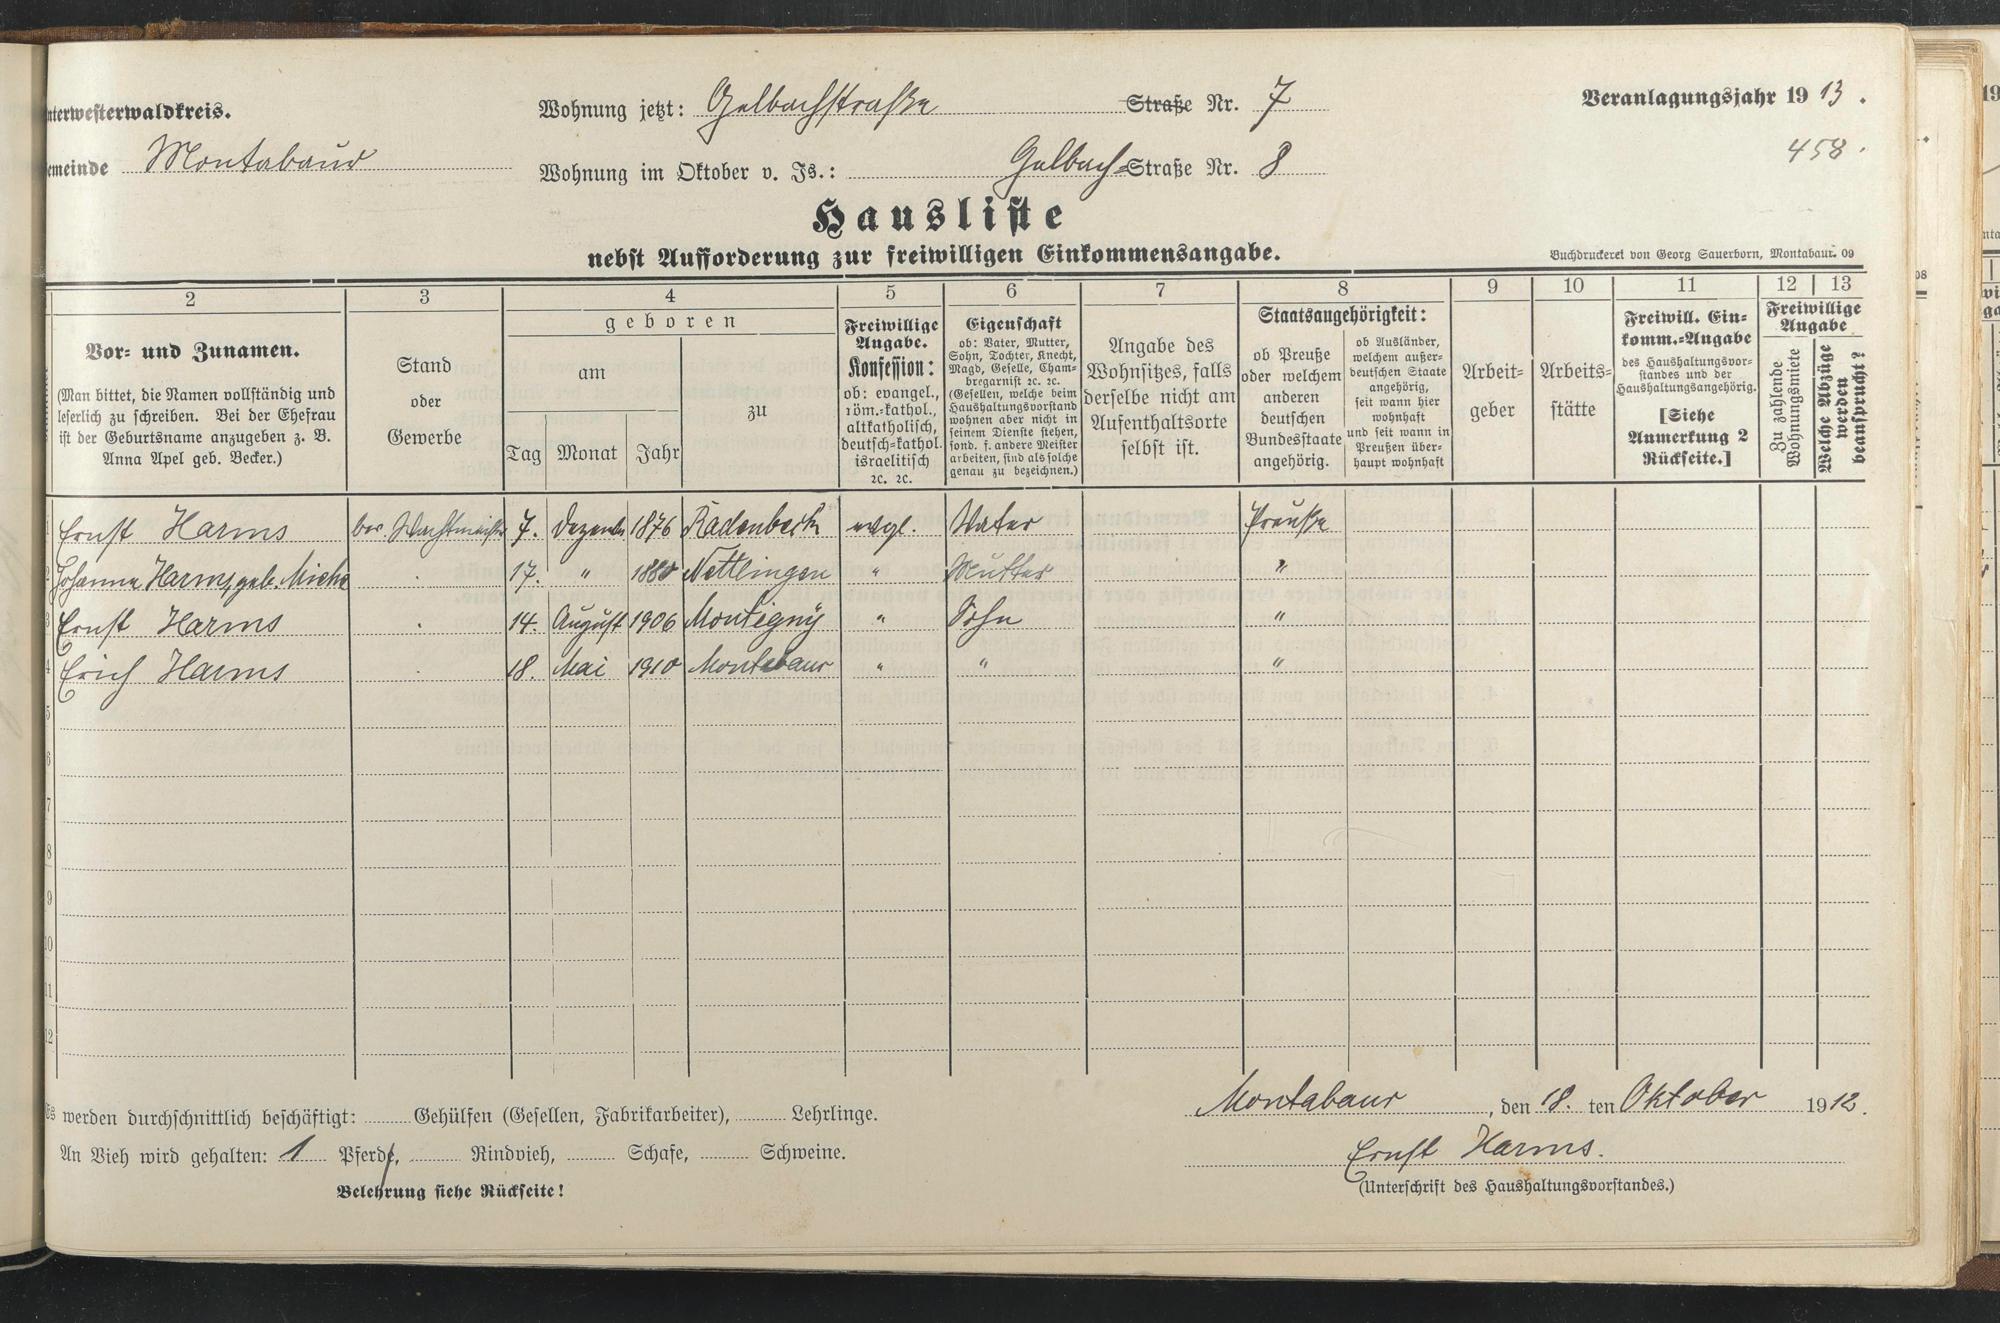 nterwesterwaldkreis.
Wohnung jetzt: Gelbachstraße Straße Nr. 7
Veranlagungsjahr 1913.
emeinde Montabaur
Wohnung im Oktober v. Js.: Gelbach-Straße Nr. 8
458.
Hausliste
nebst Aufforderung zur freiwilligen Einkommensangabe.
Buchdruckerei von Georg Sauerborn, Montabaur. 09
2 3 4 5 6 7 8 9 10 11 12 13
Vor- und Zunamen.
(Man bittet, die Namen vollständig und
leserlich zu schreiben. Bei der Ehefrau
ist der Geburtsname anzugeben z. B.
Anna Apel geb. Becker.)
Stand
oder
Gewerbe
geboren
am
Tag Monat Jahr
zu
Freiwillige
Angabe.
Konfession:
ob: evangel.,
röm.-kathol.,
altkatholisch,
deutsch-kathol.
israelitisch
ꝛc. ꝛc.
Eigenschaft
ob: Vater, Mutter,
Sohn, Tochter, Knecht,
Magd, Geselle, Cham-
bregarnist ꝛc. ꝛc.
(Gesellen, welche beim
Haushaltungsvorstand
wohnen aber nicht in
seinem Dienste stehen,
sond. f. andere Meister
arbeiten, sind als solche
genau zu bezeichnen.)
Angabe des
Wohnsitzes, falls
derselbe nicht am
Aufenthaltsorte
selbst ist.
Staatsangehörigkeit:
ob Preuße
oder welchem
anderen
deutschen
Bundesstaate
angehörig.
ob Ausländer,
welchem außer-
deutschen Staate
angehörig,
seit wann hier
wohnhaft
und seit wann in
Preußen über-
haupt wohnhaft
Arbeit-
geber
Arbeits-
stätte
Freiwill. Ein-
komm.-Angabe
des Haushaltungsvor-
standes und der
Haushaltungsangehörig.
[Siehe
Anmerkung 2
Rückseite.]
Freiwillige
Angabe
Zu zahlende
Wohnungsmiete
Welche Abzüge
werden
beansprucht?
1 Ernst Harms ber. Wachtmeister 7. Dezemb. 1876 Radenbeck evgl. Vater Preuße
2 Johanna Harms, geb. Miehe . 17. " 1880 Nettlingen " Mutter "
3 Ernst Harms . 14. August 1906 Montigny " Sohn "
4 Erich Harms . 18. Mai 1910 Montabaur " " "
5
6
7
8
9
10
11
12
Es werden durchschnittlich beschäftigt: Gehülfen (Gesellen, Fabrikarbeiter), Lehrlinge.
An Vieh wird gehalten: 1 Pferde, Rindvieh, Schafe, Schweine.
Belehrung siehe Rückseite!
Montabaur, den 18. ten Oktober 1912.
Ernst Harms.
(Unterschrift des Haushaltungsvorstandes.)